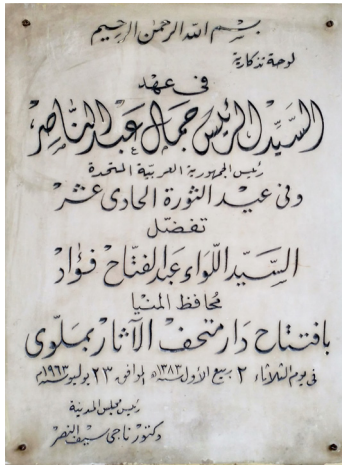 بسم الله الرحمن الرحيم
لوحة تذكارية
فى عهد
السيد الرئيس جمال عبد الناصر
رئيس الجمهورية العربية المتحدة
وفى عيد الثورة الحادى عشر
تفضل
السيد اللواء عبد الفتاح فؤاد
محافظ المنيا
بافتتاح دار متحف الآثار بملوى
فى يوم الثلاثاء ٢ ربيع الأول سنة ١٣٨٣هـ الموافق ٢٣ يوليو سنة ١٩٦٣م
رئيس مجلس المدينة
دكتور ناجى سيف النصر